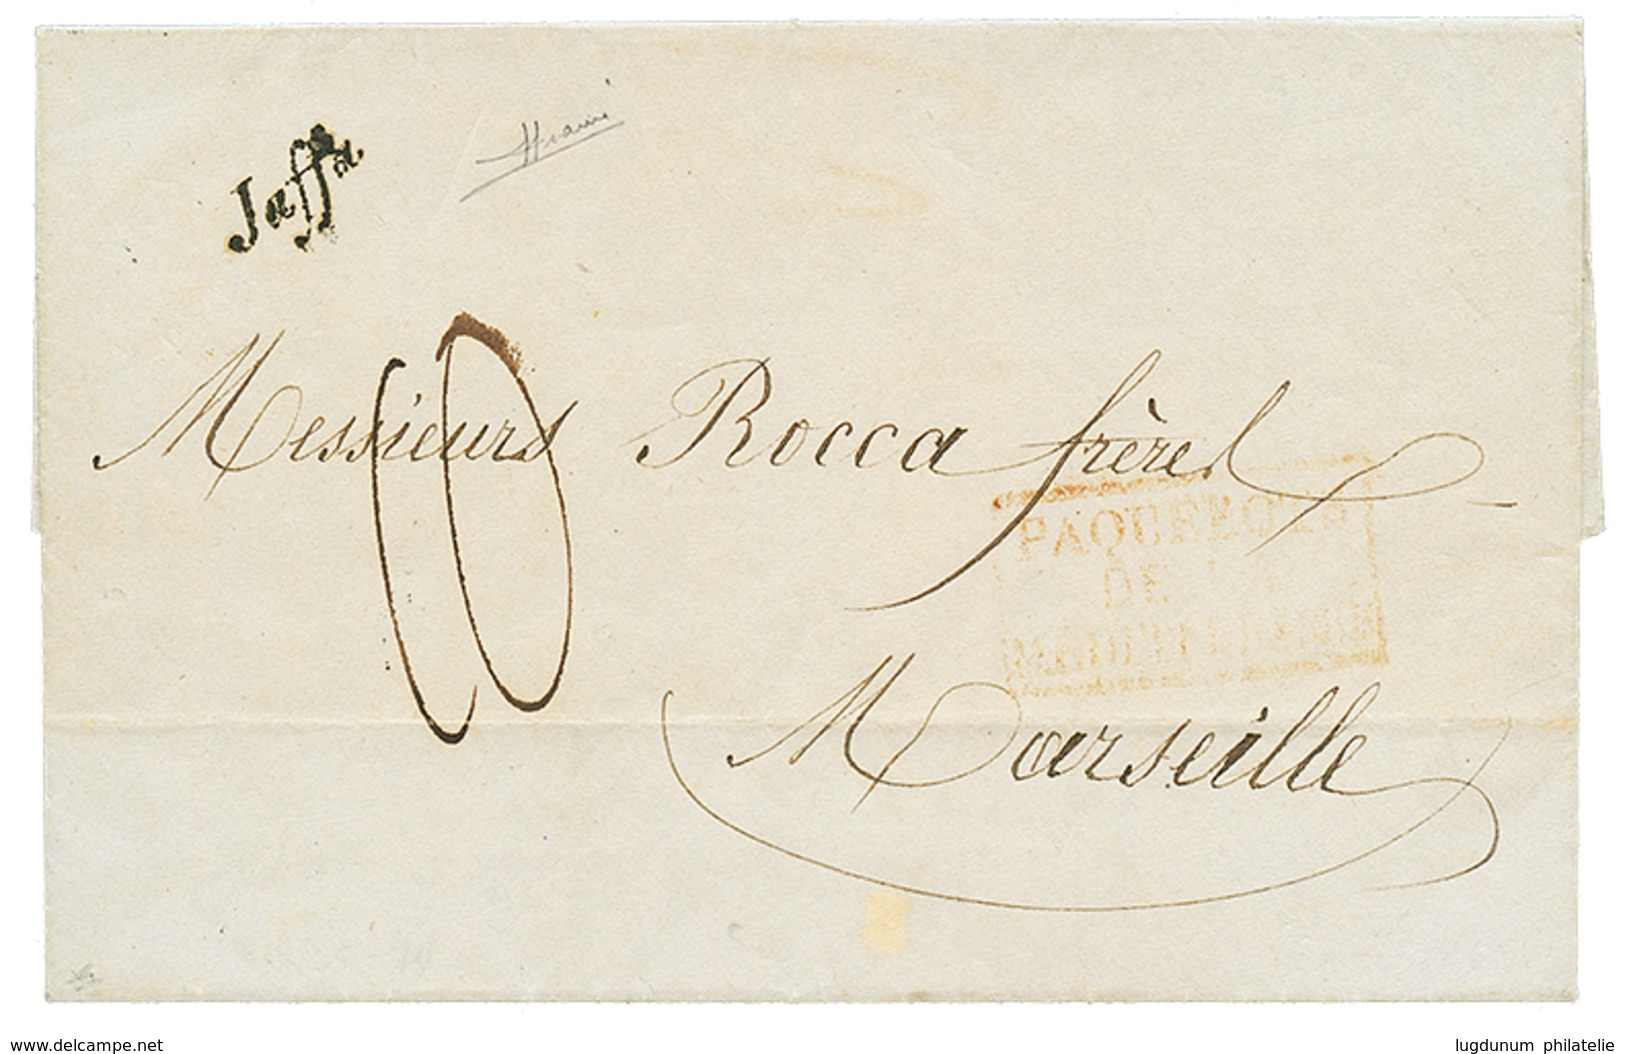 Jaffa
10
Messieurs Rocca frères
PAQUEBOTS
DE LA
MÉDITERRANÉE
Marseille
www.delcampe.net
lugdunum philatelie